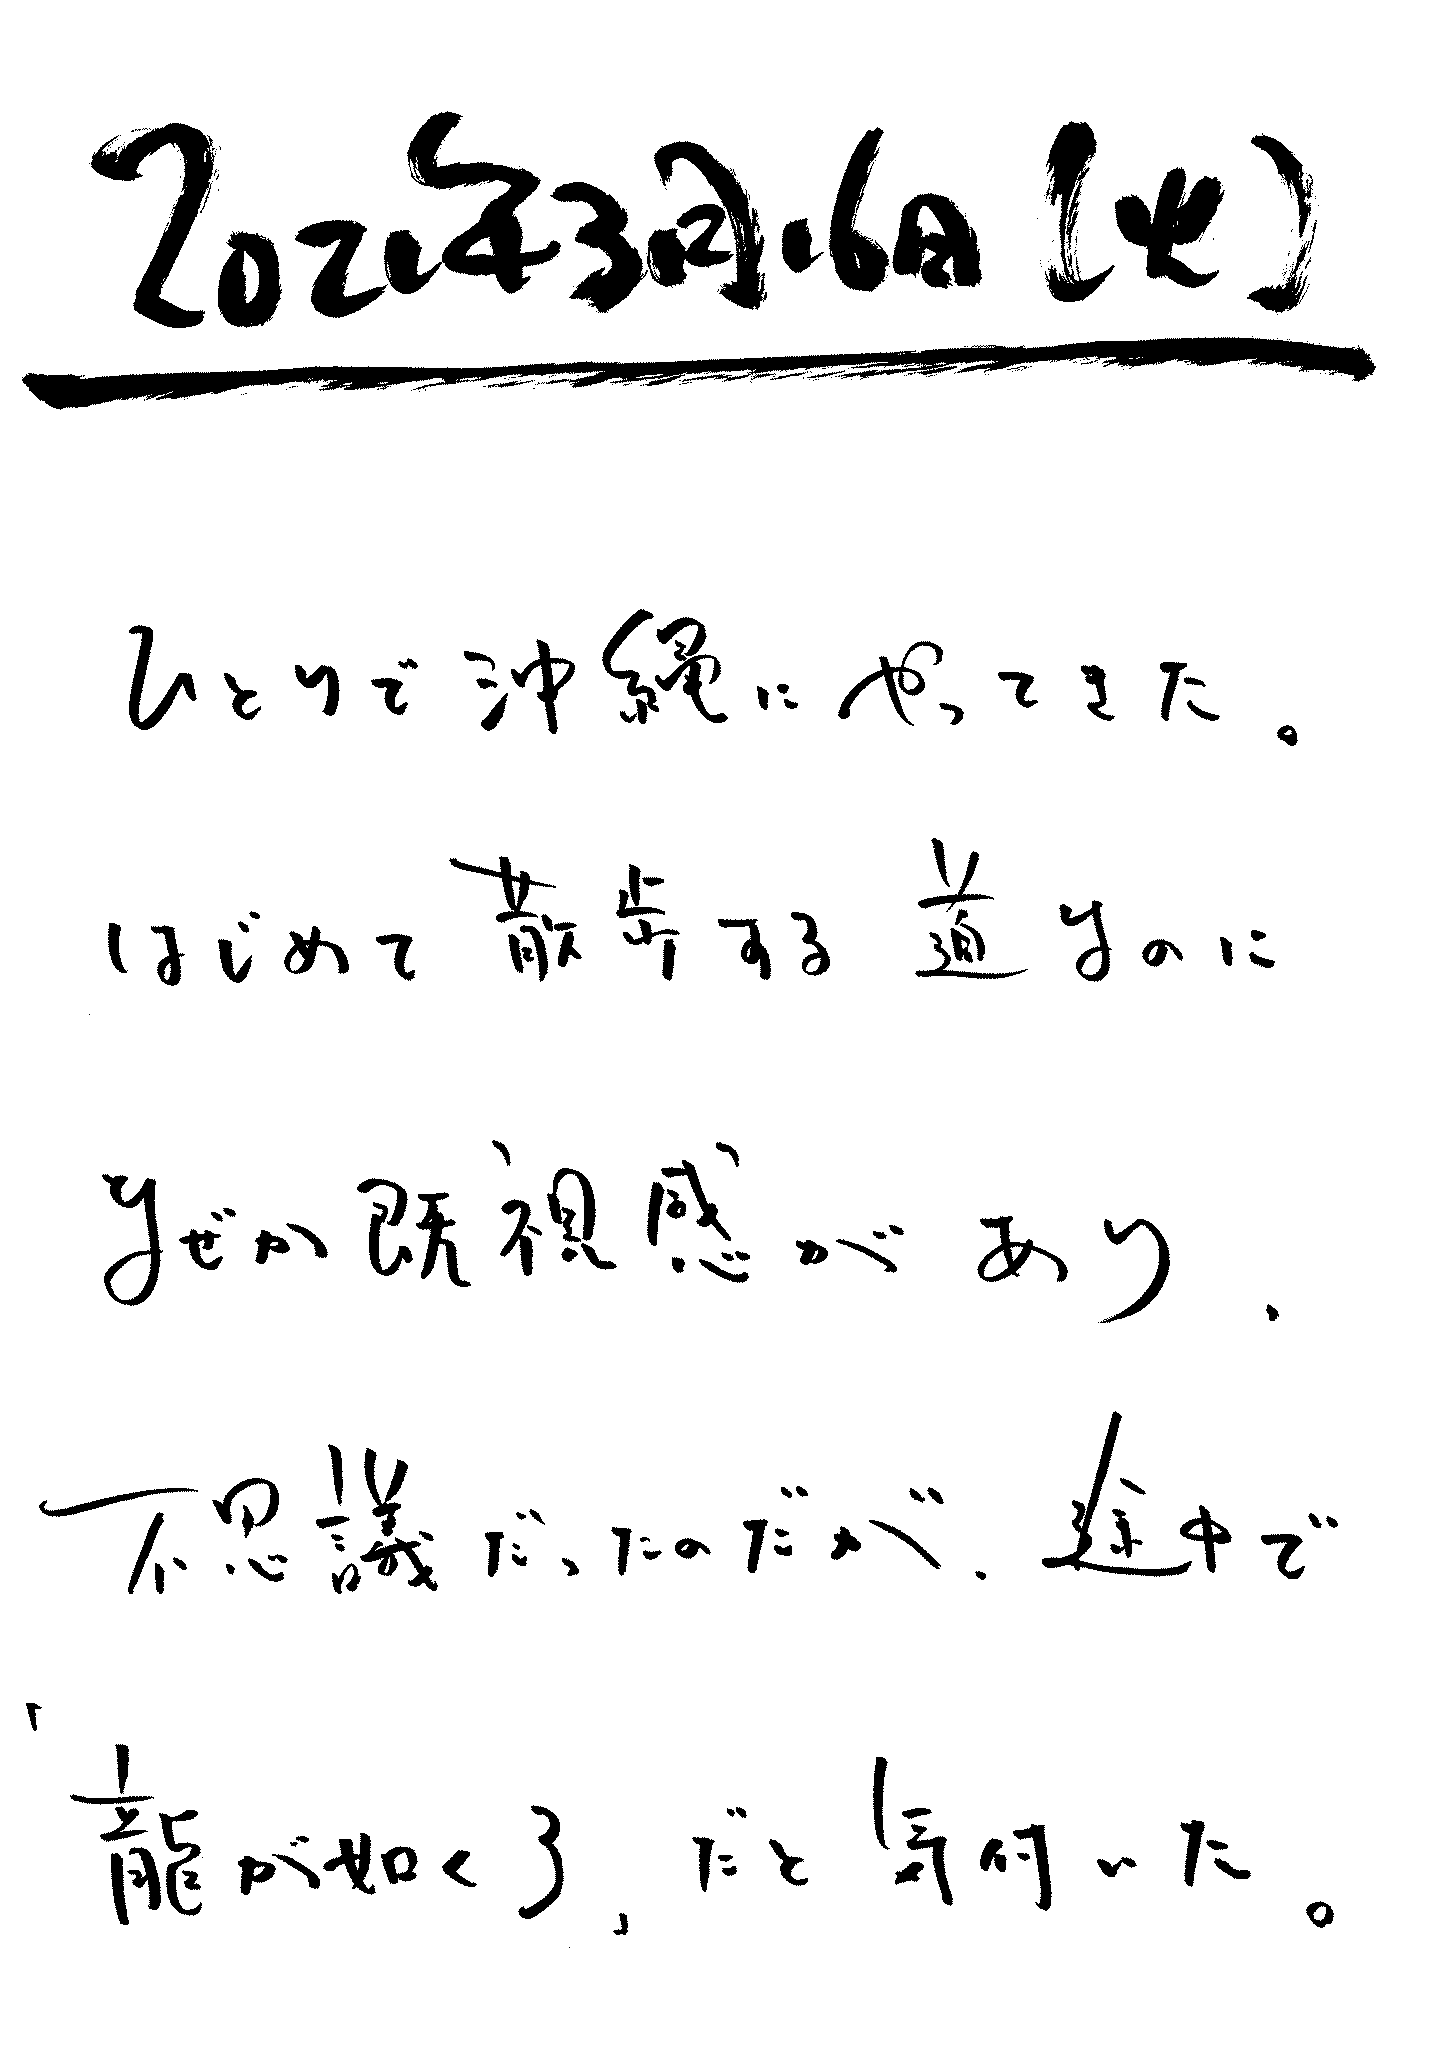 2021年3月16日(火)
ひとりで沖縄にやってきた。
はじめて散歩する道なのに
なぜか既視感があり、
不思議だったのだが、途中で
「龍が如く3」だと気付いた。